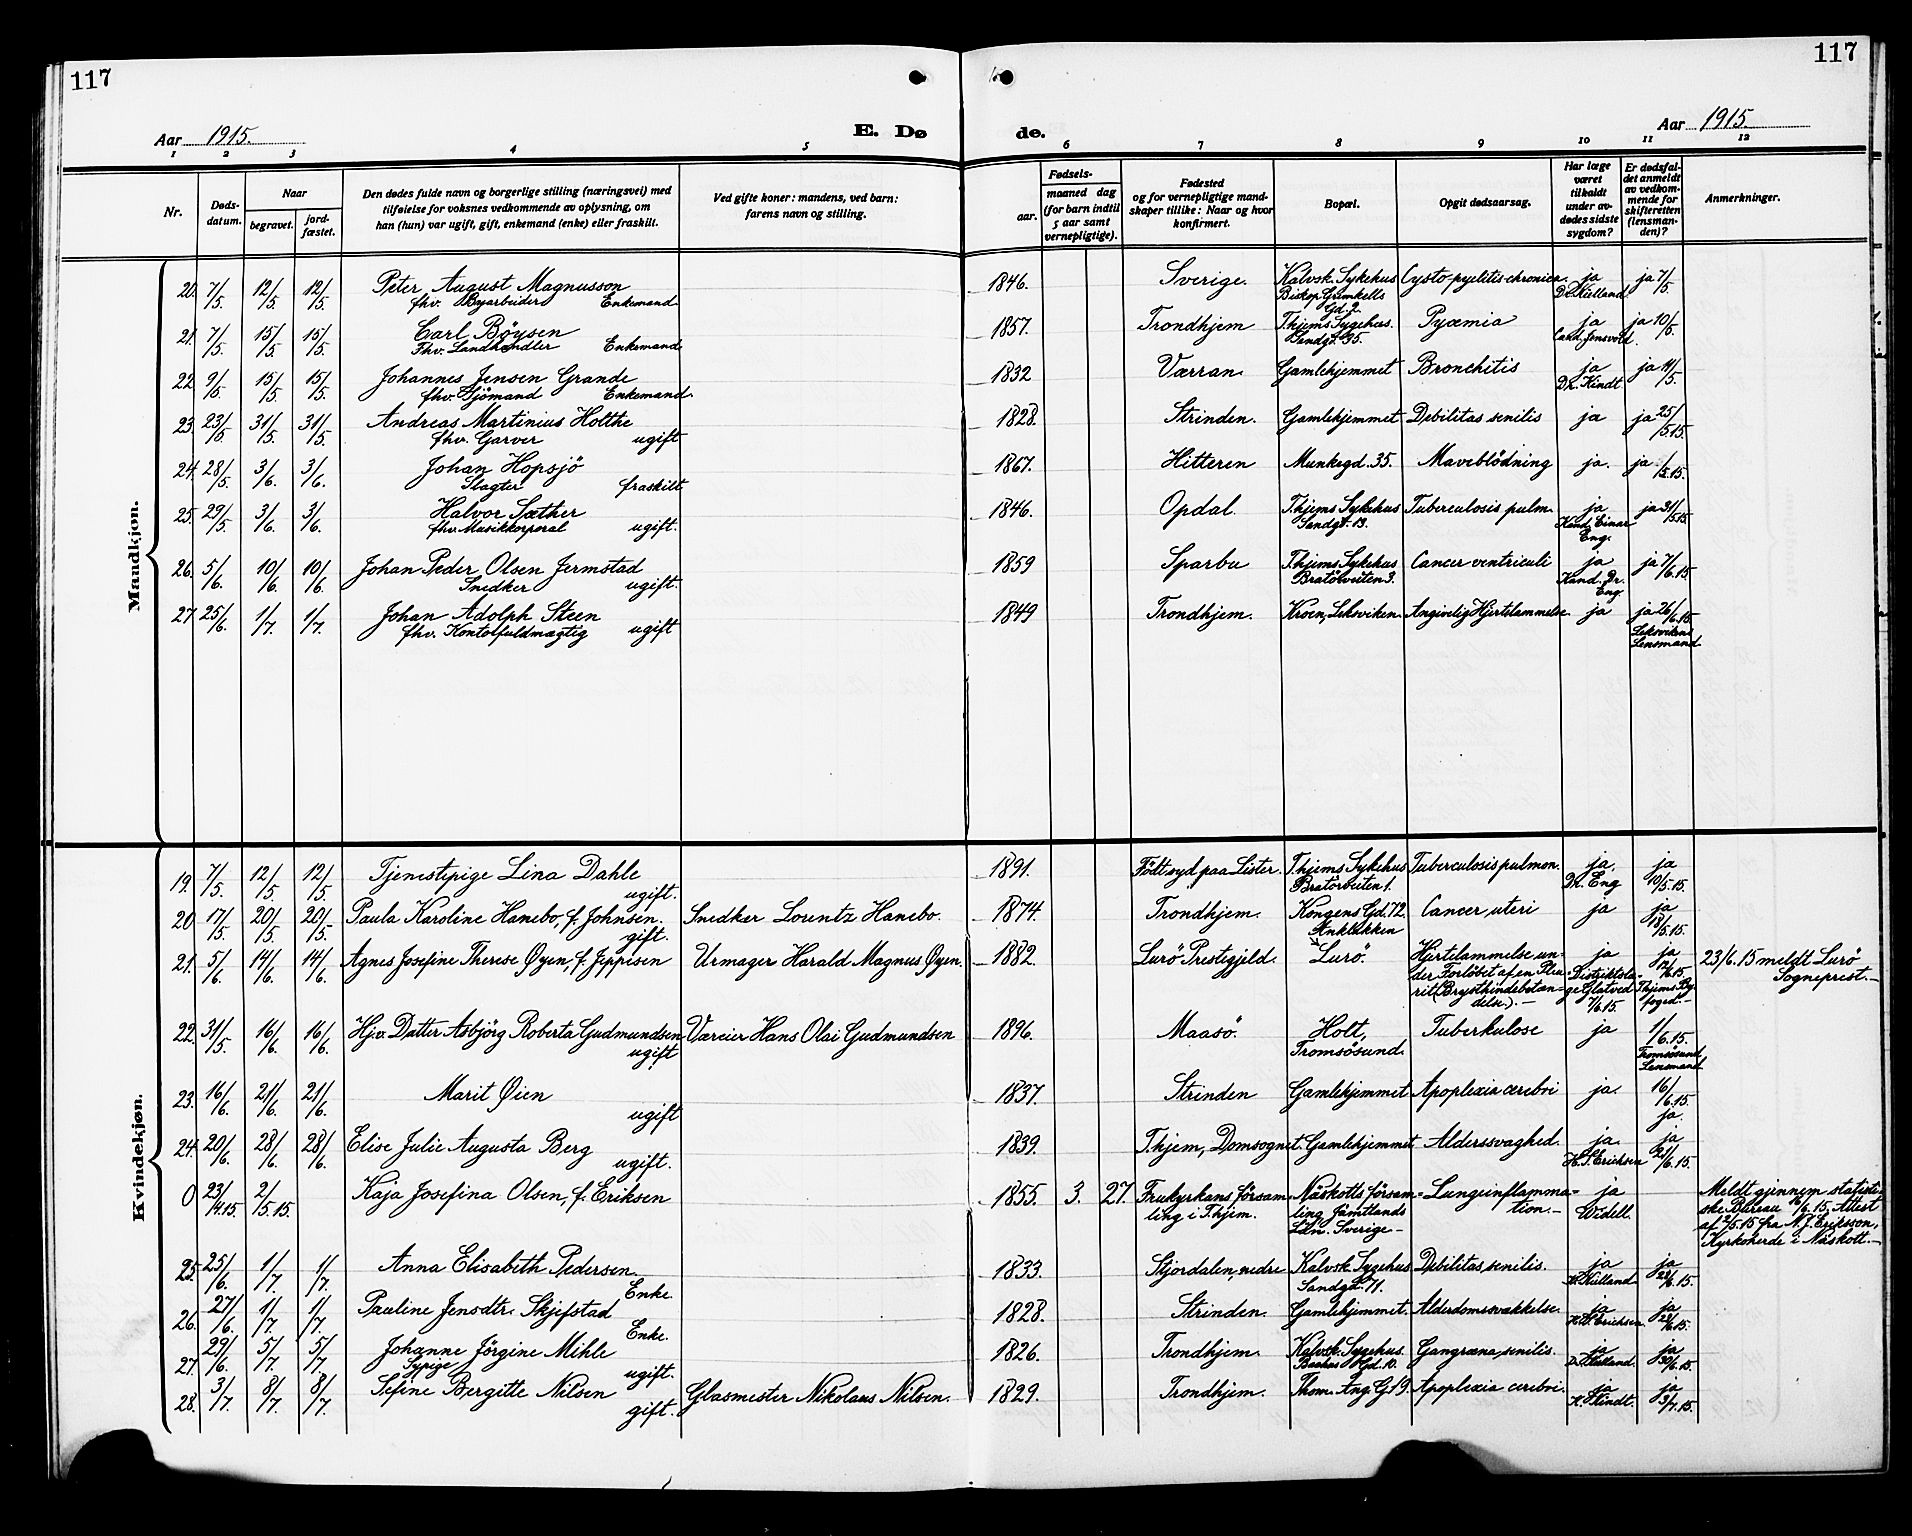 117
117
Aar 1915.
E. Dø
de.
Aar 1915.
1 2 3 4 5 6 7 8 9 10 11 12
Nr.
Døds-
datum.
Naar
begravet.
jord-
fæstet.
Den dødes fulde navn og borgerlige stilling (næringsvei) med
tilføielse for voksnes vedkommende av oplysning, om
han (hun) var ugift, gift, enkemand (enke) eller fraskilt.
Ved gifte koner: mandens, ved barn:
farens navn og stilling.
Fødsels-
aar.
maaned dag
(for barn indtil
5 aar samt
vernepligtige).
Fødested
og for vernepligtige mand-
skaper tillike: Naar og hvor
konfirmert.
Bopæl.
Opgit dødsaarsag.
Har læge
været
tilkaldt
under av-
dødes sidste
sygdom?
Er dødsfal-
det anmeldt
av vedkom-
mende for
skifteretten
(lensman-
den)?
Anmerkninger.
Mandkjøn.
20. 7/5. 12/5. 12/5. Peter August Magnusson 1846. Sverige. Kalvsk. Sykehus Cysto-pyelitis chronica ja ja 7/5.
fhv. Byarbeider Enkemand Biskop Grimkells Gd. 2. Dr. Kielland
21. 7/5. 15/5. 15/5. Carl Böysen 1857. Trondhjem T.hjems Sygehus. Pyæmia ja ja 10/5.
Fhv. Landhandler Enkemand Sandgt. 35. Cand. Jensvold.
22. 9/5. 15/5. 15/5. Johannes Jensen Grande 1832 Værran Gamlehjemmet Bronchitis ja ja 11/5.
fhv. Sjömand Enkemand. Dr. Kindt
23. 23/5. 31/5. 31/5. Andreas Martinius Holthe 1828. Strinden. Gamlehjemmet Debilitas senilis ja ja 25/5.15.
fhv. Garver ugift
24. 28/5. 3/6. 3/6. Johan Hopsjö 1867. Hitteren Munkegd. 35. Maveblödning ja. ja /5.15.
Slagter fraskilt
25. 29/5 3/6. 3/6. Halvor Sæther 1846. Opdal. T.hjems Sykehus Tuberculosis pulm. ja ja 31/5.15.
fhv. Musikkorporal ugift. Sandgt. 13. Kand. Einar Eng.
26. 5/6. 10/6. 10/6. Johan Peder Olsen Jermstad 1859 Sparbu T.hjems Sykehus Cancer ventriculi ja ja 7/6.15.
Snedker ugift. Bratörveiten 3. Kand. Dr. Eng.
27. 25/6. 1/7. 1/7. Johan Adolph Steen 1849 Trondhjem. Kroen, Leksviken. Angivelig Hjertelammelse ja ja 26/6.15.
fhv. Kontorfuldmægtig ugift Leksvikens
Lensmand.
Kvindekjøn.
19. 7/5. 12/5. 12/5. Tjenestepige Lina Dahle 1891. Födt syd paa Lister. T.hjems Sykehus Tuberculosis pulmon. ja. ja
ugift. Bratörveiten 1. Dr. Eng 10/5.15.
20 17/5. 20/5. 20/5. Paula Karoline Hanebo, f. Johnsen. Snedker Lorentz Hanebo. 1874. Trondhjem. Kongens Gd. 72. Cancer uteri ja ja
gift. 18/5.15.
21. 5/6. 14/6. 14/6. Agnes Josefine Therese Øyen, f. Jeppisen Urmager Harald Magnus Øyen. 1882. Lurö Prestegjeld. Lurö. Hjertelammelse un- ja ja 23/6.15 meldt Lurö
der Forlöbet af en Pleu- Distriktslæ- 12/6.15. Sogneprest.
rit (Brysthindebetæn- ge Glatved T.hjems By-
delse). 7/6.15. foged.
22. 31/5. 16/6. 16/6. Hjv. Datter Asbjörg Roberta Gudmundsen Væreier Hans Olai Gudmundsen 1896. Maasö. Holt, Tuberkulose ja 1/6.15.
ugift Tromsösund. Tromsösund
Lensmand.
23. 16/6. 21/6. 21/6. Marit Øien 1837. Strinden Gamlehjemmet Apoplexia cerebri ja. 16/6.15.
ugift ja.
24. 20/6. 28/6. 28/6. Elise Julie Augusta Berg 1839. T.hjem, Domsognet. Gamlehjemmet Alderssvaghed. ja. ja
ugift. H. S. Erichsen 21/6.15.
0 23/4.15 2/5.15. Kaja Josefina Olsen, f. Eriksen 1855. 3. 27. Frukyrkans försam- Näskotts försam- Lungeinflamma- ja Meldt gjennem statisti-
ling i T.hjem. ling Jämtlands tion. Widell. ske Bureau 16/6.15, Attest
Län. Sverige af 2/5.15 fra N. J. Eriksson,
Kyrkoherde i Näskott.
25. 25/6. 1/7. 1/7. Anna Elisabeth Pedersen 1833. Stjordalen, nedre Kalvsk. Sygehus Debilitas senilis. ja ja
Enke. Sandgd. 71. Kielland 28/6.15.
26. 27/6. 1/7. 1/7. Pauline Jensdtr. Skjefstad 1828. Strinden. Gamlehjemmet. Alderdomssvakkelse. ja ja
Enke. H. S. Erichsen 28/6.15.
27. 29/6. 5/7. 5/7. Johanne Jörgine Mihle 1826. Trondhjem. Kalvsk. Sygehus. Gangræna senilis. ja ja
Sypige ugift. Bakkes Gd. 10. Kielland. 30/6.15.
28. 3/7. 8/7. 8/7. Sefine Bergitte Nilsen Glasmester Nikolaus Nilsen. 1829. Trondhjem. Thom. Ang. G. 19. Apoplexia cerebri. ja ja
gift. Kindt. 3/7.15.